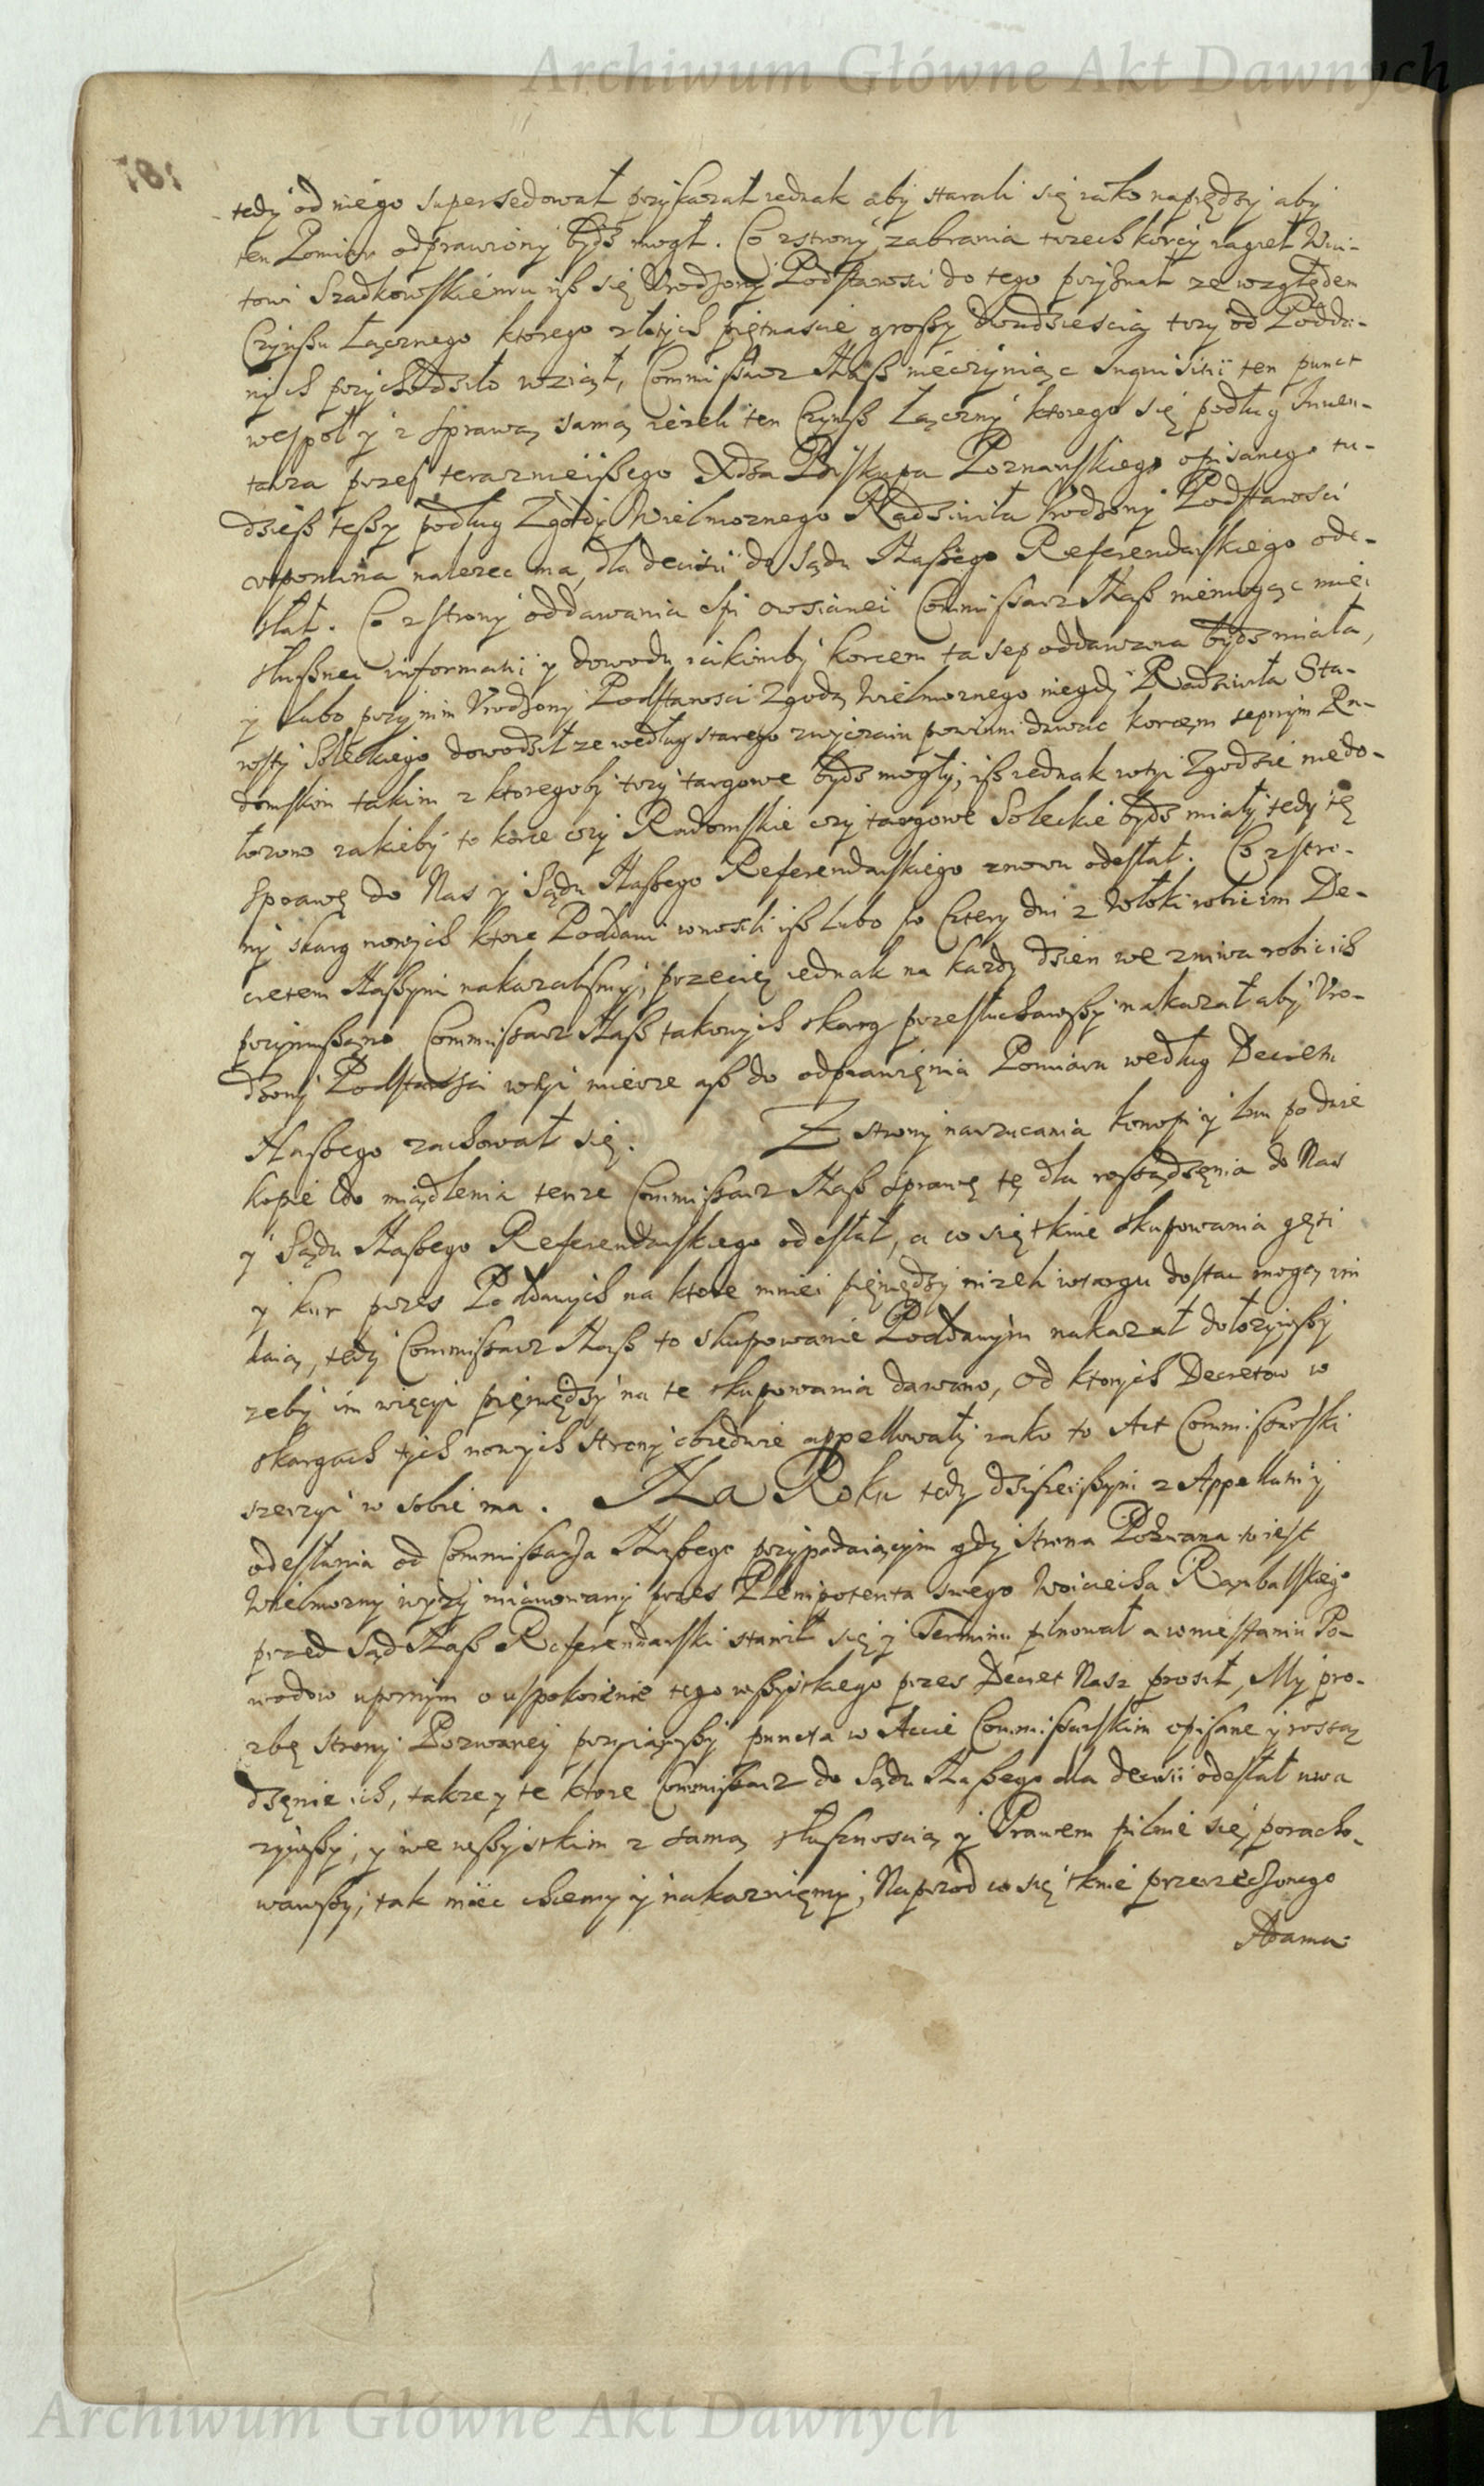 Archiwum Główne Akt Dawnych
tedy od niego supersedował przykazał iednak aby starali się iako naprędzy aby
ten Pomiar odprawiony bydz mogł. Co zstrony zabrania trzech korcy iagieł Woi-
towi Szadkowskiemu iß się Urodzony Podstarosci do tego przyznał ze względem
Czynßu Łącznego ktorego złotych piętnascie großy dwadziescia trzy od Podda-
nych przychodziło wziął, Commissarz Naß nieczyniąc Inquisitii ten punct
wespoł y z sprawą samą iezeli ten Czynß Łączny ktorego się podług Inwen-
tarza przes teraznieißego Xdza Biskupa Poznanskiego opisanego tu-
dzieß teßy podług Zgody Wielmoznego Radziwiła Urodzony Podstarosci
upomina nalezec ma, dla decisii do Sądu Naßego Referendarskiego ode-
słał. Co zstrony oddawania Spi owsianei Commissarz Naß niemogąc miec
słußnei informatii y dowodu iakimby korcem ta sep oddawana bydz miała,
y lubo przy nim Urodzony Podstarosci Zgodą Wielmoznego niegdy Radziwiła Sta-
rosty Soleckiego dowodził ze według starego zwyczaiu powinni dawac korcem sepnym Ra-
domskim takim z ktoregoby trzy targowe bydz mogły, iß iednak wtyi Zgodzie niedo-
łozono iakieby to korce czy Radomskie czy targowe Soleckie bydz miały tedy tę
Sprawę do Nas y Sądu Naßego Referendarskiego znowu odesłał. Co zstro-
ny skarg nowych ktore Poddani wnosili iß lubo po Cztery dni z Włoki robic im De-
cretem Naßym nakazalismy, przecię iednak na kazdy dzien we zniwa robic ich
przymußano Commissarz Naß takowych skarg przesłuchawßy nakazał aby Uro-
dzony Podstarosci wtyi mierze aß do odprawienia Pomiaru według Decretu
Naßego zachował się. Z strony narzucania konopi y lnu po dwie
kopie do międlenia tenze Commissarz Naß sprawę tę dla rosſądzenia do Nas
y Sądu Naßego Referendarskiego odesłał, a co się tknie skupowania gęsi
y kur przes Poddanych na ktore mniei pięniędzy nizeli wtargu dostac mogą im
daią, tedy Commissarz Naß to skupowanie Poddanym nakazał dołozywßy
zeby im więcyi pięniędzy na te skupowania dawano, od ktorych Decretow w
skargach tych nowych strony obiedwie appellowały iako to Act Commissarski
szerzyi w sobie ma. Na Roku tedy dzisieißym z Appellatii y
odesłania od Commissarza Naßego przypadaiącym gdy strona Pozwana to iest
Wielmozny wyzy mianowany przes Plenipotenta swego Woiciecha
przed Sąd Naß Referendarski stawił się y Terminu pilnował a wniestaniu Po-
wodow upornym o uspokoienie tego wßystkiego przes Decret Nasz prosił, My pro-
zbę strony Pozwaney przyiąwßy puncta w Akcie Commissarskim opisane y rossą
dzęnie ich, takze y te ktore Commissarz do Sądu Naßego dla decisii odesłał uwa
zywßy, y we wßystkim z samą słusznoscią y Prawem pilnie się poracho-
wawßy, tak miec chcemy y nakazuięmy, Naprzod co się tknie przerzeczonego
Adama
Archiwum Główne Akt Dawnych